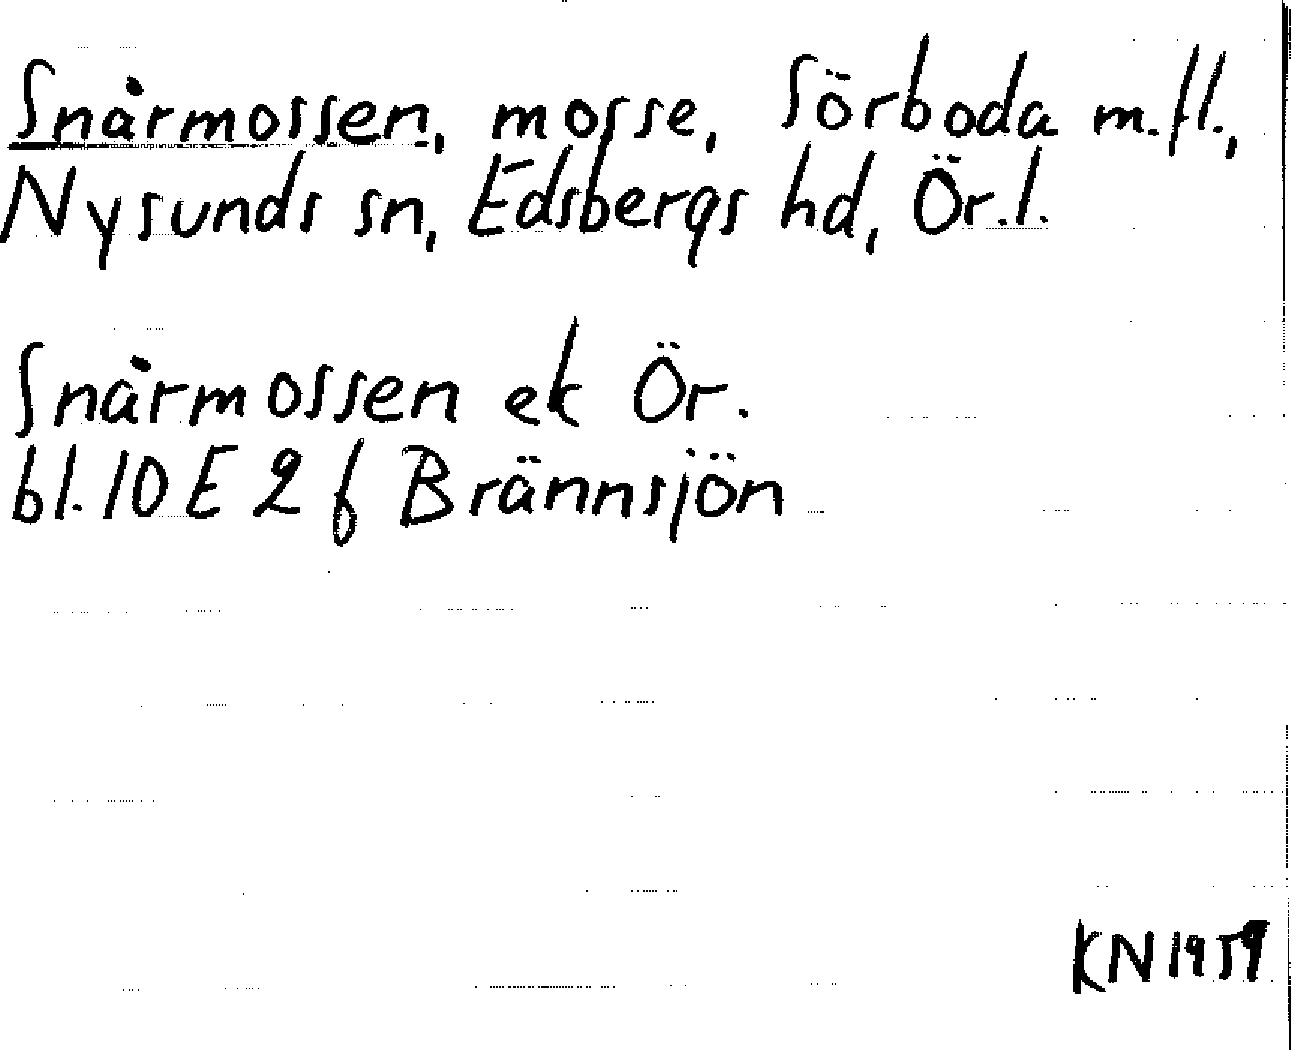 Snårmossen, mosse, Sörboda m.fl.,
Nysunds sn, Edsbergs hd, Ör.l.
Snårmossen ek Ör.
bl. 10 E 2 f Brännsjön
KN 1959